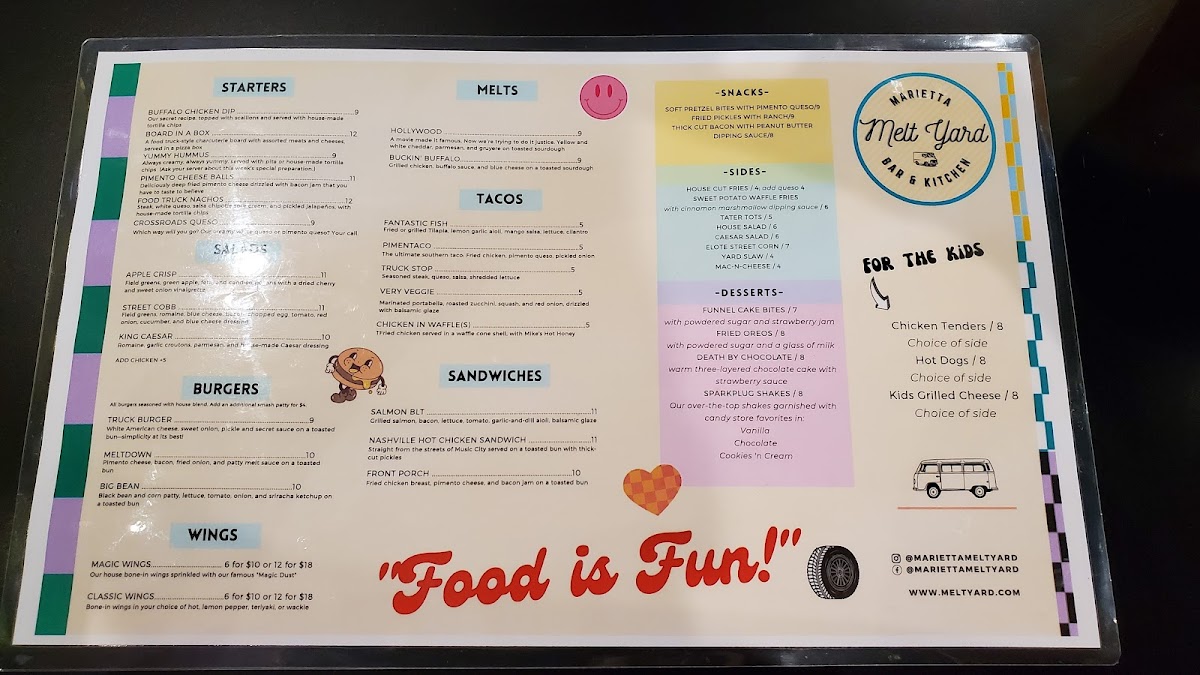 STARTERS
BUFFALO CHICKEN DIP 9
Our secret recipe, topped with scallions and served with house-made
tortilla chips
BOARD IN A BOX 12
A food truck-style charcuterie board with assorted meats and cheeses,
served in a pizza box
YUMMY HUMMUS 9
Always creamy, always yummy, served with pita or house-made tortilla
chips. (Ask your server about this week's special preparation.)
PIMENTO CHEESE BALLS 11
Deliciously deep fried pimento cheese drizzled with bacon jam that you
have to taste to believe
FOOD TRUCK NACHOS 12
Steak, white queso, salsa chipotle sour cream, and pickled jalapeños, with
house-made tortilla chips
CROSSROADS QUESO 9
Which way will you go? Our creamy white queso or pimento queso? Your call
SALADS
APPLE CRISP 11
Field greens, green apple, feta, and candied pecans with a dried cherry
and sweet onion vinaigrette
STREET COBB 11
Field greens, romaine, blue cheese, bacon, chopped egg, tomato, red
onion, cucumber, and blue cheese dressing
KING CAESAR 10
Romaine, garlic croutons, parmesan, and house-made Caesar dressing
ADD CHICKEN +5
BURGERS
All burgers seasoned with house blend. Add an additional smash patty for $4.
TRUCK BURGER 9
White American cheese, sweet onion, pickle and secret sauce on a toasted
bun—simplicity at its best!
MELTDOWN 10
Pimento cheese, bacon, fried onion, and patty melt sauce on a toasted
bun
BIG BEAN 10
Black bean and corn patty, lettuce, tomato, onion, and sriracha ketchup on
a toasted bun
WINGS
MAGIC WINGS 6 for $10 or 12 for $18
Our house bone-in wings sprinkled with our famous "Magic Dust"
CLASSIC WINGS 6 for $10 or 12 for $18
Bone-in wings in your choice of hot, lemon pepper, teriyaki, or wackie
MELTS
HOLLYWOOD 9
A movie made it famous. Now we're trying to do it justice. Yellow and
white cheddar, parmesan, and gruyere on toasted sourdough
BUCKIN' BUFFALO 9
Grilled chicken, buffalo sauce, and blue cheese on a toasted sourdough
TACOS
FANTASTIC FISH 5
Fried or grilled Tilapia, lemon garlic aioli, mango salsa, lettuce, cilantro
PIMENTACO 5
The ultimate southern taco. Fried chicken, pimento queso, pickled onion
TRUCK STOP 5
Seasoned steak, queso, salsa, shredded lettuce
VERY VEGGIE 5
Marinated portabella, roasted zucchini, squash, and red onion, drizzled
with balsamic glaze
CHICKEN IN WAFFLE(S) 5
TFried chicken served in a waffle cone shell, with Mike's Hot Honey
SANDWICHES
SALMON BLT 11
Grilled salmon, bacon, lettuce, tomato, garlic-and-dill aioli, balsamic glaze
NASHVILLE HOT CHICKEN SANDWICH 11
Straight from the streets of Music City served on a toasted bun with thick-
cut pickles
FRONT PORCH 10
Fried chicken breast, pimento cheese, and bacon jam on a toasted bun
"Food is Fun!"
-SNACKS-
SOFT PRETZEL BITES WITH PIMENTO QUESO/9
FRIED PICKLES WITH RANCH/9
THICK CUT BACON WITH PEANUT BUTTER
DIPPING SAUCE/8
-SIDES-
HOUSE CUT FRIES / 4, add queso 4
SWEET POTATO WAFFLE FRIES
with cinnamon marshmallow dipping sauce / 6
TATER TOTS / 5
HOUSE SALAD / 6
CAESAR SALAD / 6
ELOTE STREET CORN / 7
YARD SLAW / 4
MAC-N-CHEESE / 4
-DESSERTS-
FUNNEL CAKE BITES / 7
with powdered sugar and strawberry jam
FRIED OREOS / 8
with powdered sugar and a glass of milk
DEATH BY CHOCOLATE / 8
warm three-layered chocolate cake with
strawberry sauce
SPARKPLUG SHAKES / 8
Our over-the-top shakes garnished with
candy store favorites in:
Vanilla
Chocolate
Cookies 'n Cream
MARIETTA
Melt Yard
BAR & KITCHEN
FOR THE KIDS
Chicken Tenders / 8
Choice of side
Hot Dogs / 8
Choice of side
Kids Grilled Cheese / 8
Choice of side
@MARIETTAMELTYARD
@MARIETTAMELTYARD
WWW.MELTYARD.COM